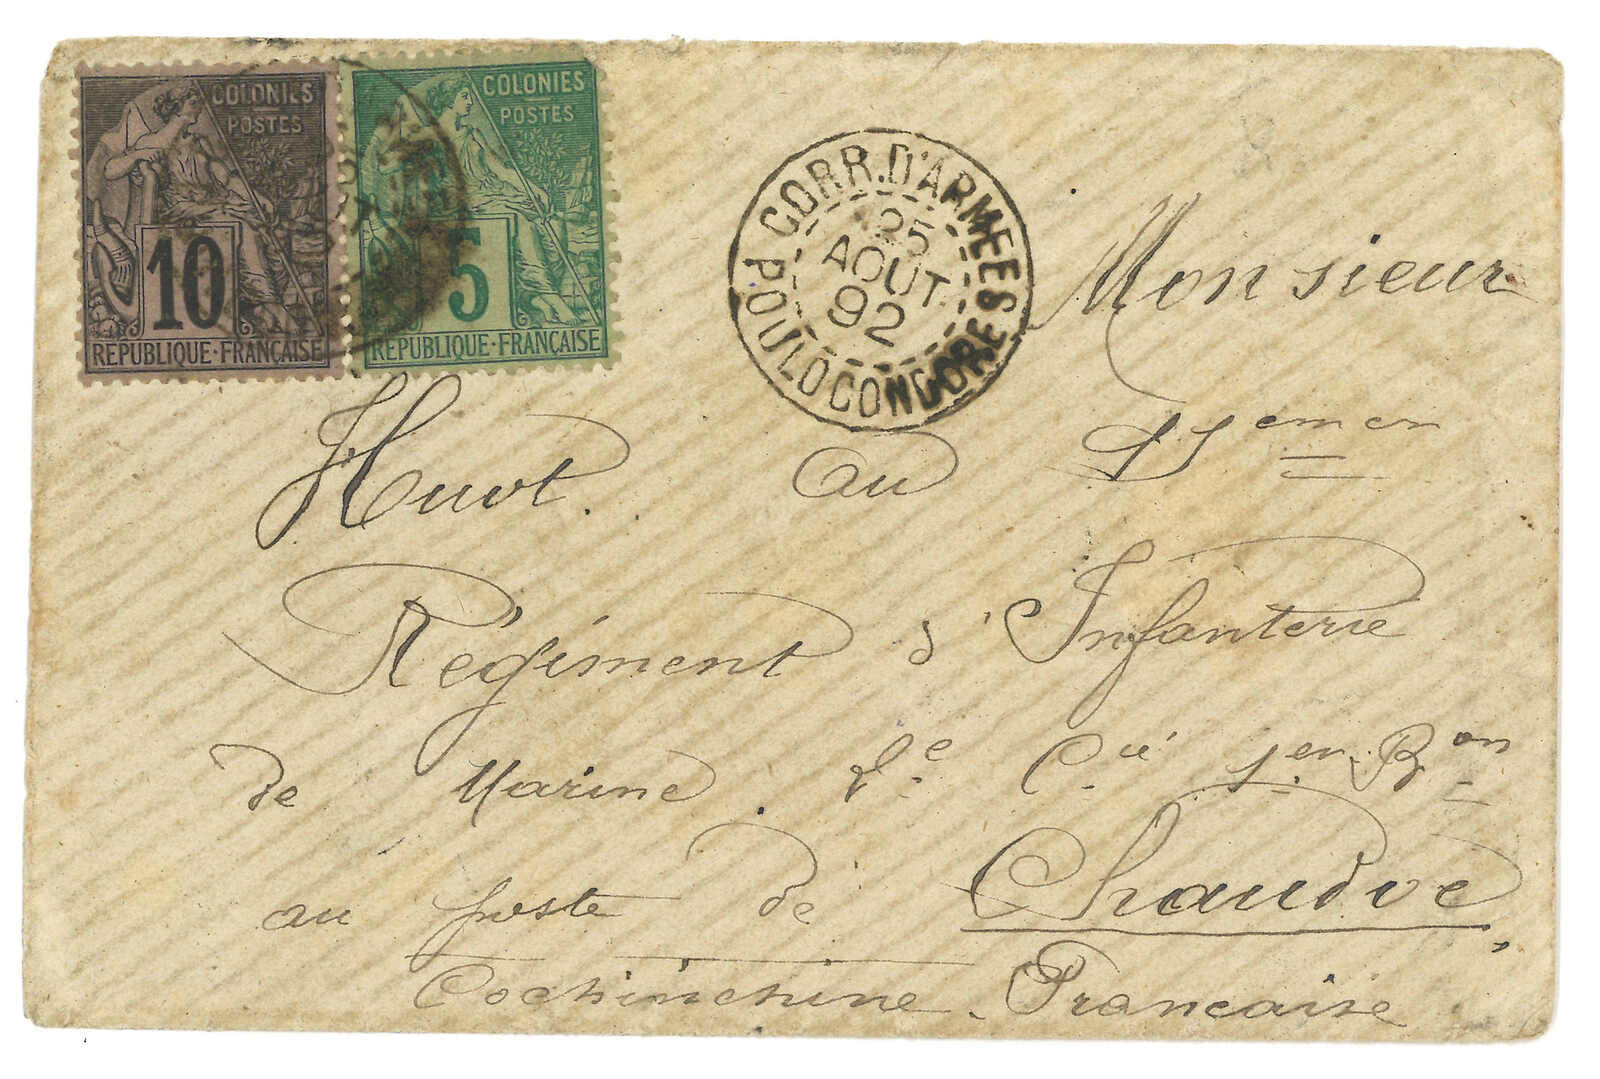 COLONIES
POSTES
10
REPUBLIQUE·FRANÇAISE
COLONIES
POSTES
5
REPUBLIQUE·FRANÇAISE
CORR. D'ARMEES
25
AOUT
92
POULO CONDORE
Monsieur
Huot. au 11emen
Régiment d'Infanterie
de Marine. 2e Cie 1er Bon
au poste de Chaudoc
Cochinchine Francaise